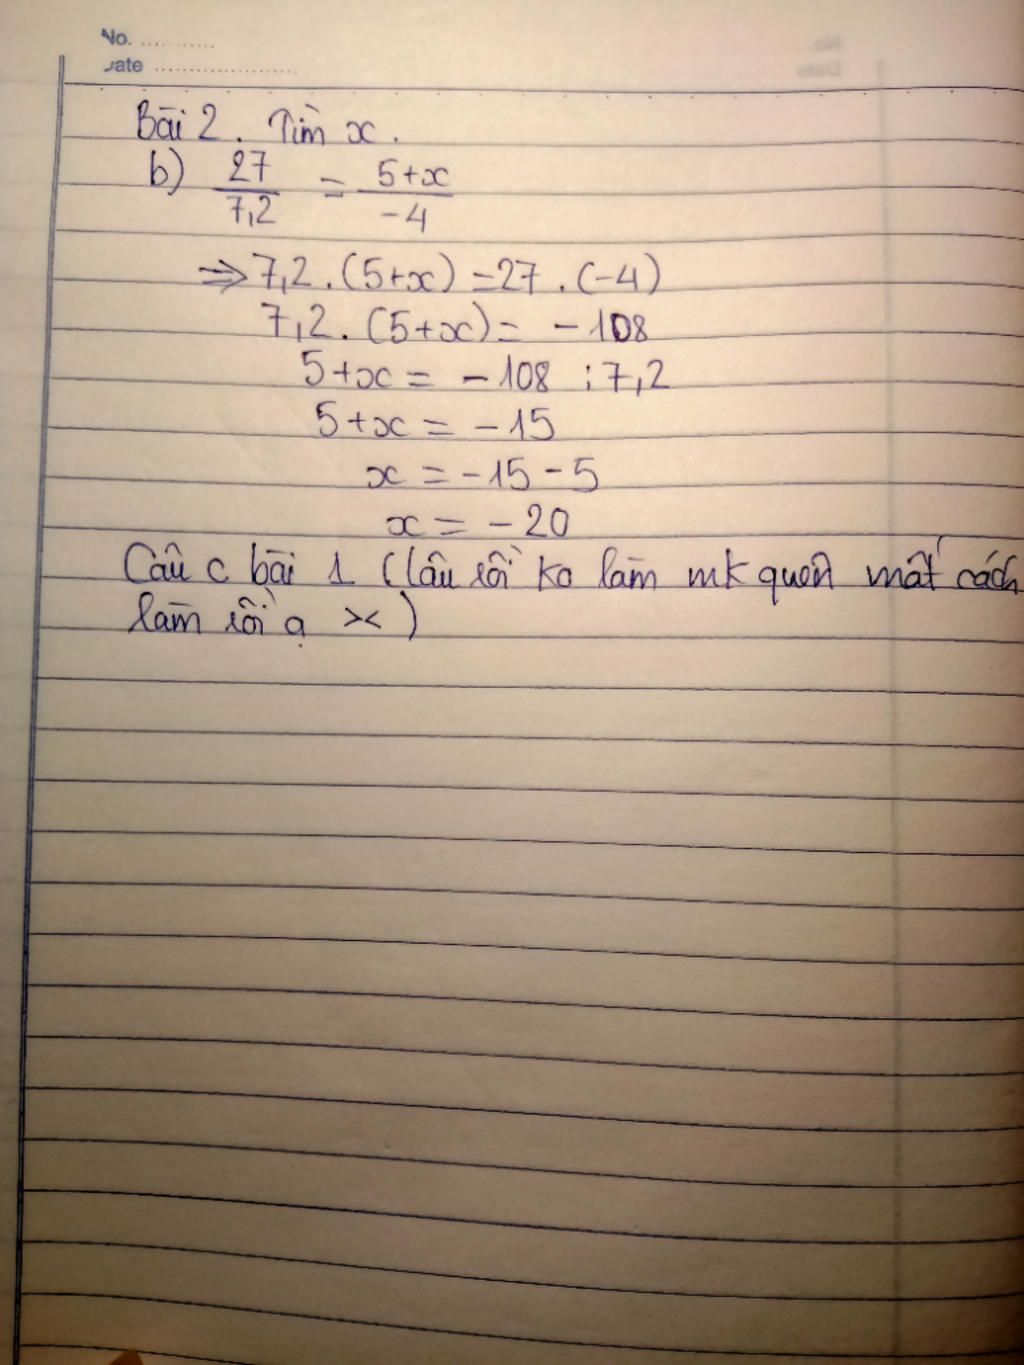 No. ...........
Date .....................
Bài 2. Tìm x.
b) 27/7,2 = 5+x/-4
⇒ 7,2 . (5+x) = 27 . (-4)
7,2 . (5+x) = - 108
5+x = - 108 : 7,2
5+x = - 15
x = - 15 - 5
x = - 20
Câu c bài 1 (lâu rồi ko làm mk quên mất cách
làm rồi ạ >< )